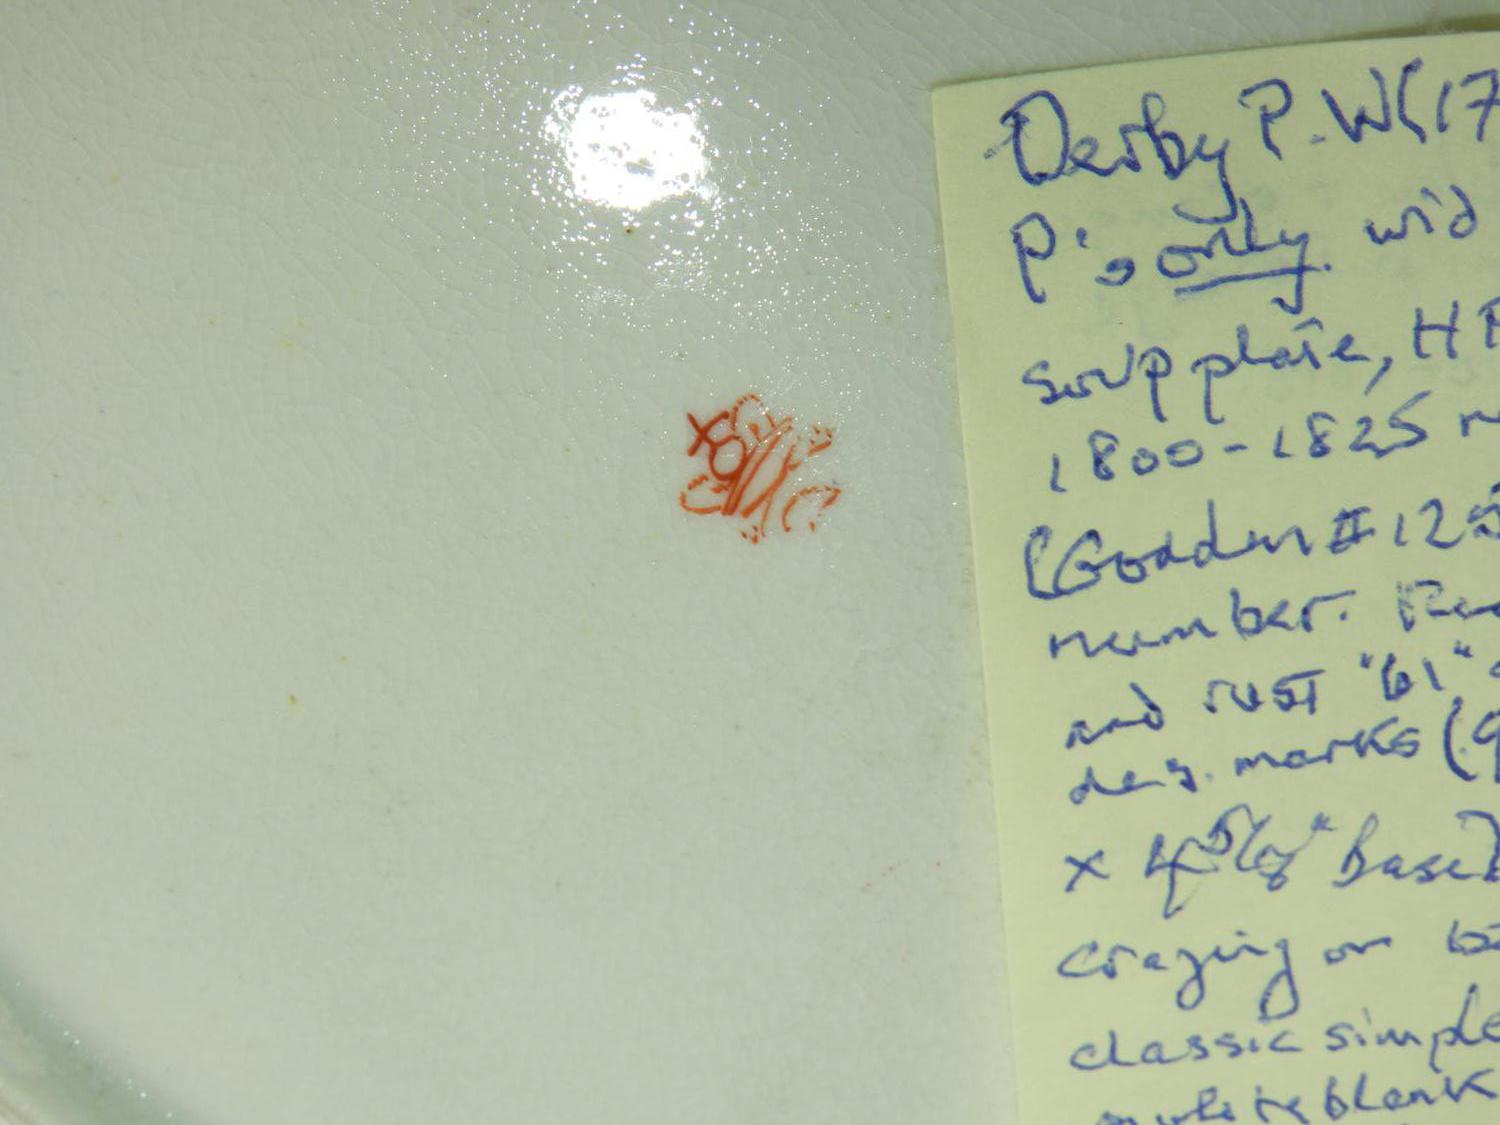 Derby P.W(17
P's only. wid
soup plate, HP
1800-1825 m
(Godden #125
number. Red
and rust "61"
des. marks (9
x 4 5/8" base)
crazing on
classic simple
white blank